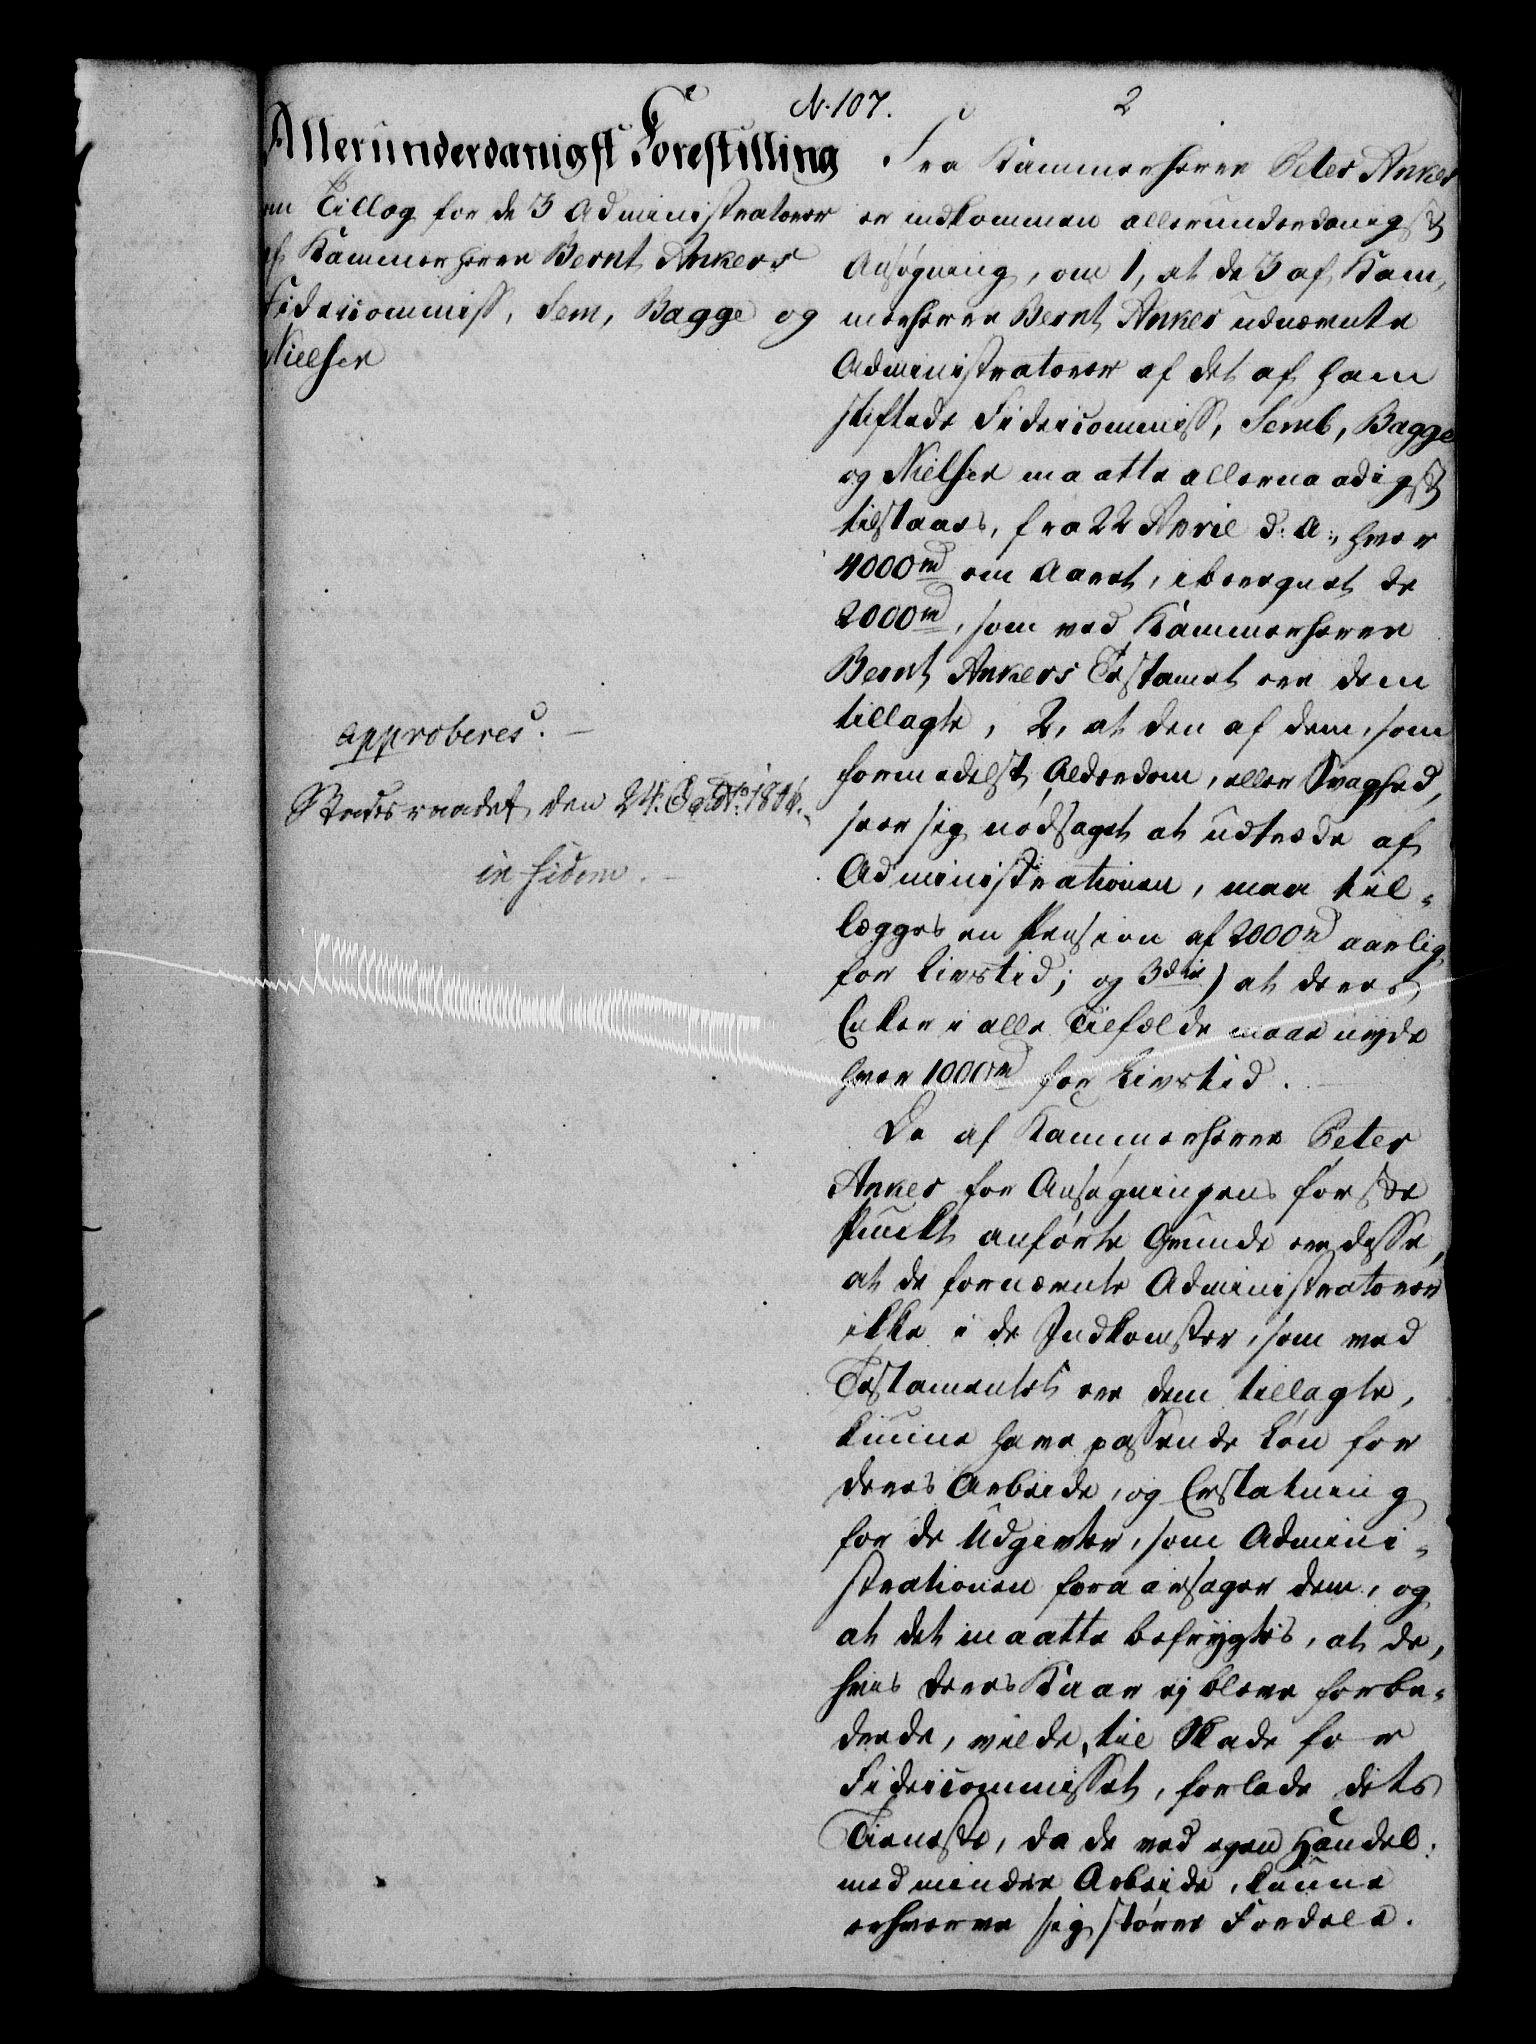 N. 107.
2
Allerunderdanigst Forestilling
om Tillæg for de 3 Administratorer
af Kammerherre Bernt Ankers
Fideicommiss, Sem, Bagge og
Nielsen
approberes. –
Statsraadet den 24. Septbr. 1806.
in fidem. –
Fra Kammerherre Peter Anker
er indkommen allerunderdanigst
Ansøgning, om 1, at de 3 af Kam-
merherre Bernt Anker udnævnte
Administratorer af det af ham
stiftede Fideicommiss, Semb, Bagge
og Nielsen maatte allernaadigst
tilstaaes, fra 22 April d. A., hver
4000 rd om Aaret, iberegnet de
2000 rd, som ved Kammerherre
Bernt Ankers Testament ere dem
tillagte, 2, at den af dem, som
formedelst Alderdom, eller Svaghed,
seer sig nødsaget at udtræde af
Administrationen, maa til-
lægges en Pension af 2000 rd aarlig
for Livstid; og 3die) at deres
Enker i alle Tilfælde maae nyde
hver 1000 rd for Livstid. –
De af Kammerherre Peter
Anker for Ansøgningens første
Punkt anførte Grunde ere disse,
at de fornævnte Administratorer
ikke i de Indkomster, som ved
Testamentet ere dem tillagte,
kunne have passende Løn for
deres Arbeide, og Erstatning
for de Udgivter, som Admini-
strationen foraarsager dem, og
at det maatte befrygtes, at de,
hvis deres Kaar ej bleve forbe-
drede, vilde, til Skade for
Fideicommisset, forlade dets
Tieneste, da de ved egen Handel
med mindre Arbeide, kunne
erhverve sig større Fordele.